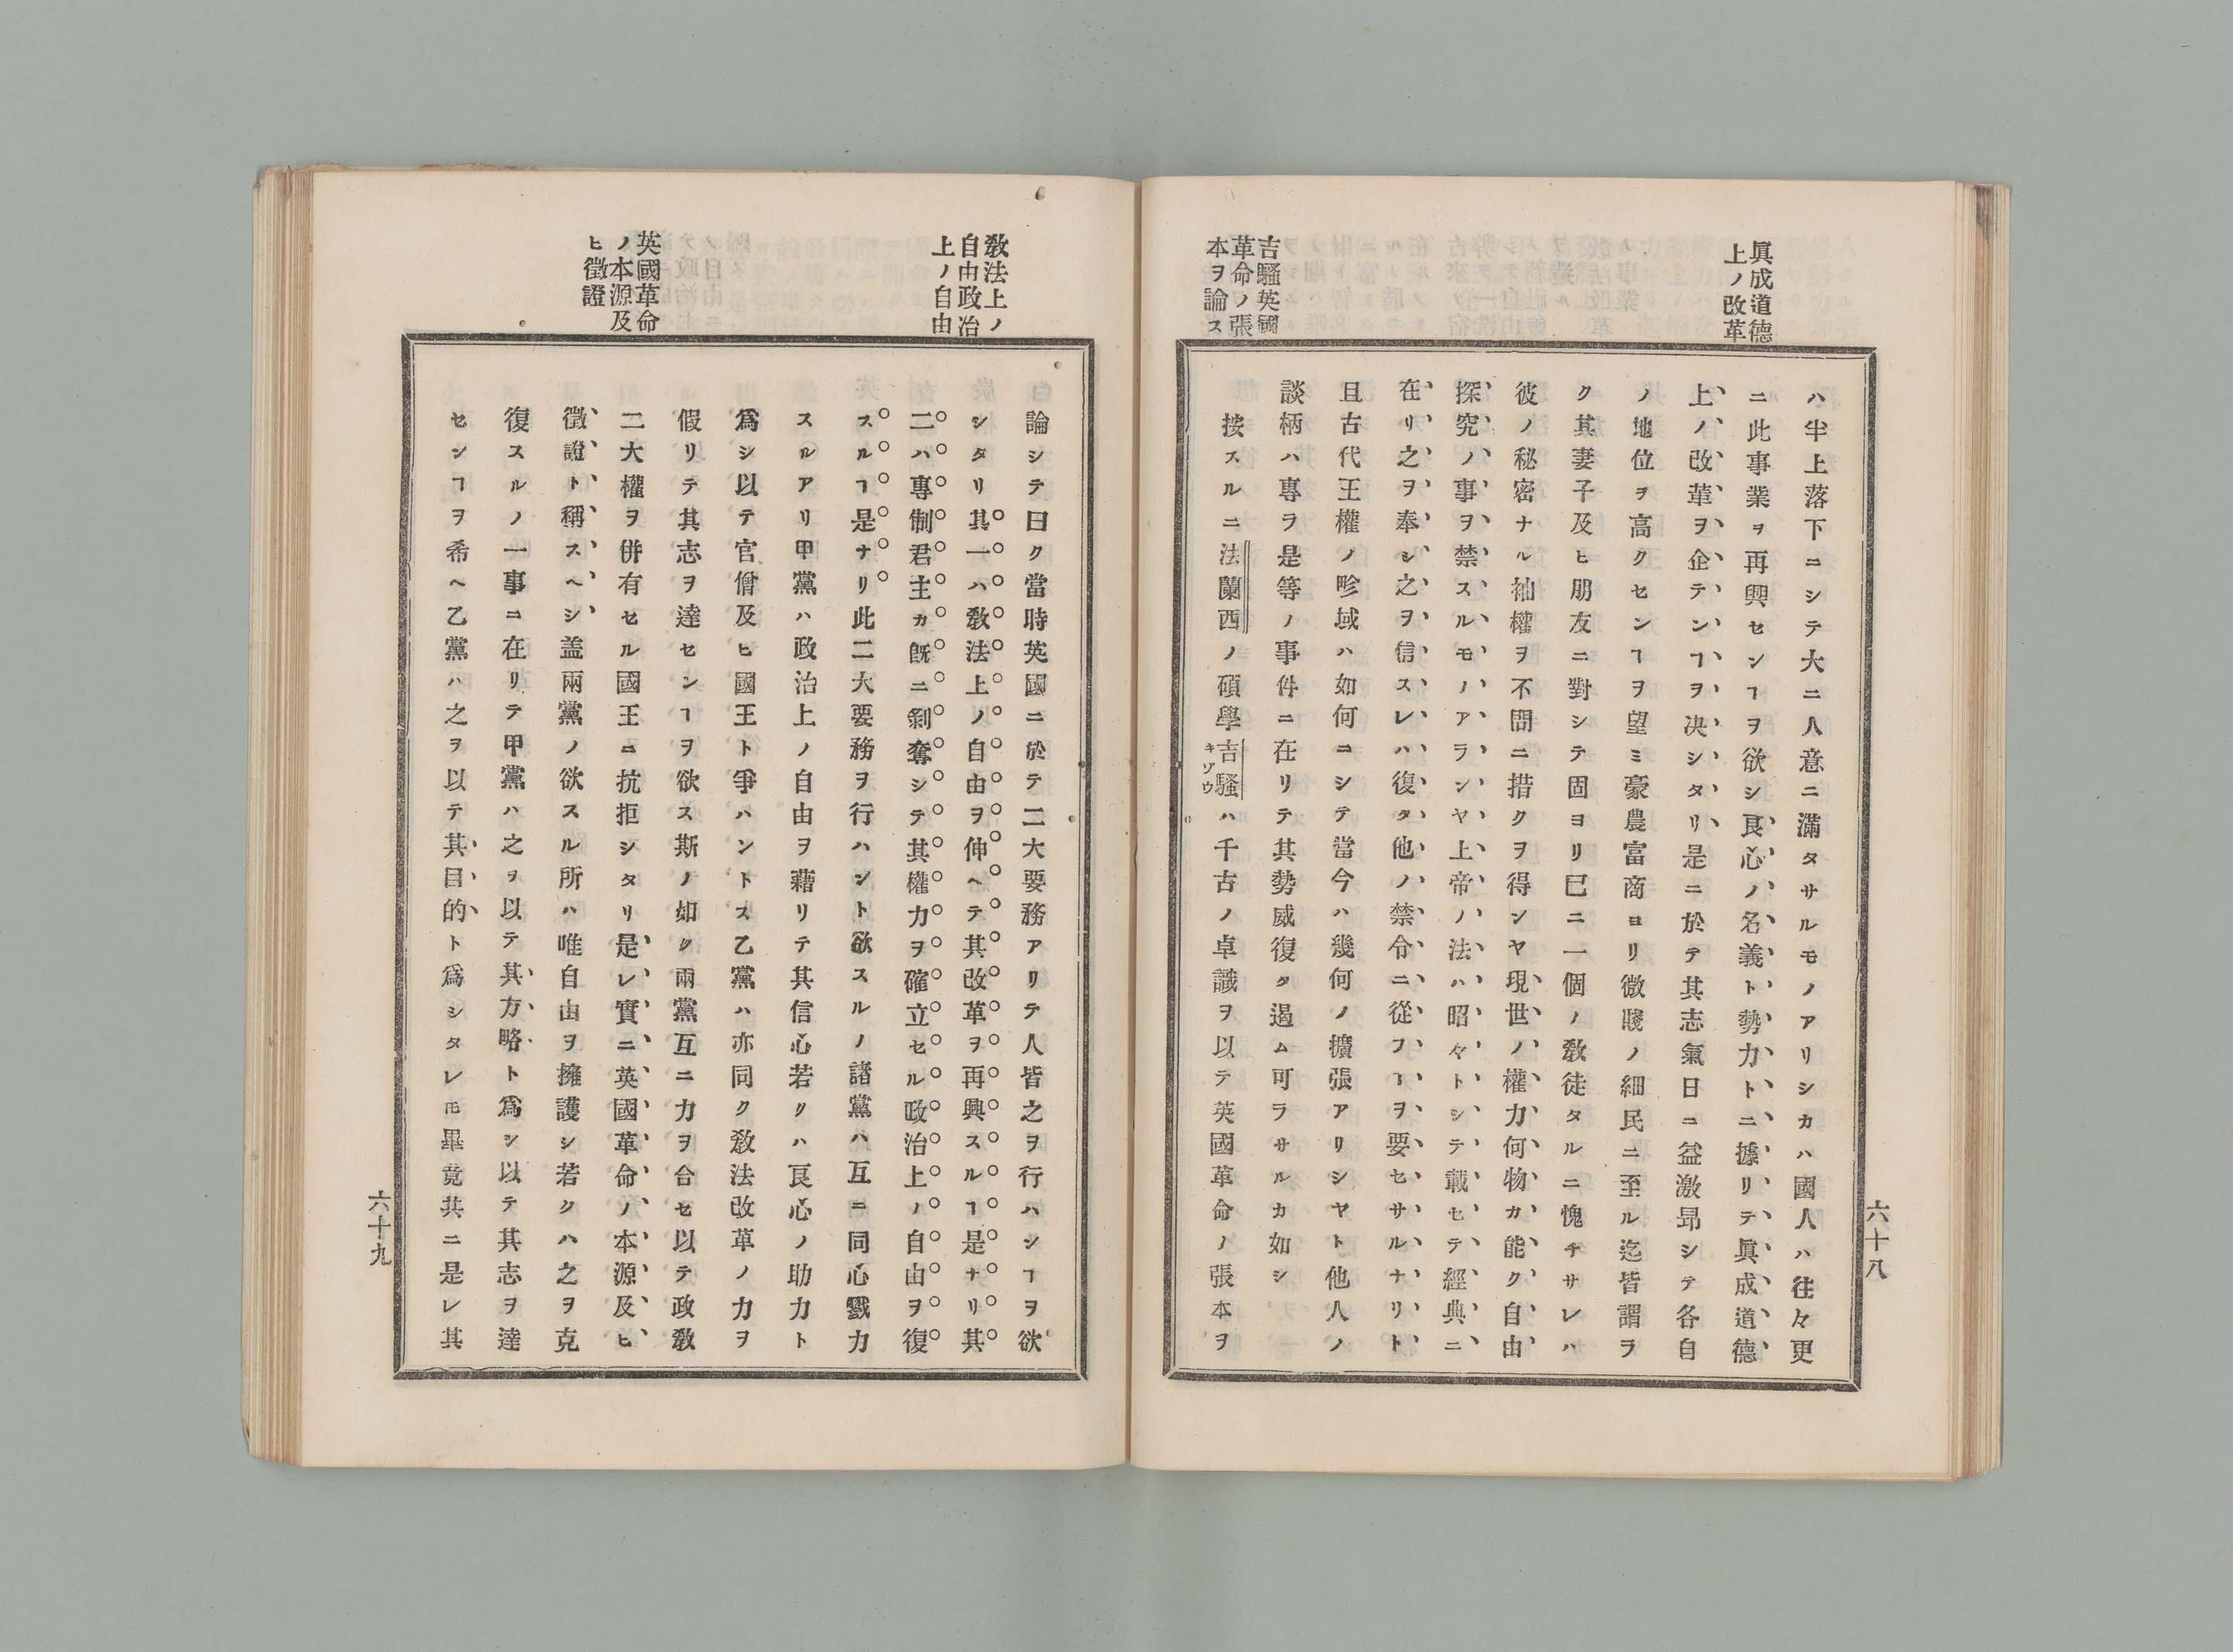 眞成道德
上ノ改革
ハ半上落下ニシテ大ニ人意ニ滿タサルモノアリシカハ國人ハ往々更
ニ此事業ヲ再興センヿヲ欲シ良心ノ名義ト勢力トニ據リテ眞成道德
上ノ改革ヲ企テンヿヲ决シタリ是ニ於テ其志氣日ニ益激昻シテ各自
ノ地位ヲ高クセンヿヲ望ミ豪農富商ヨリ微賤ノ細民ニ至ル迄皆謂ラ
ク其妻子及ヒ朋友ニ對シテ固ヨリ已ニ一個ノ敎徒タルニ愧チサレハ
彼ノ秘密ナル袖權ヲ不問ニ措クヲ得ンヤ現世ノ權力何物カ能ク自由
探究ノ事ヲ禁スルモノアランヤ上帝ノ法ハ昭々トシテ載セテ經典ニ
在リ之ヲ奉シ之ヲ信スレハ復タ他ノ禁令ニ從フヿヲ要セサルナリト
且古代王權ノ畛域ハ如何ニシテ當今ハ幾何ノ擴張アリシヤト他人ノ
談柄ハ專ラ是等ノ事件ニ在リテ其勢威復タ遏ム可ラサルカ如シ
吉騷英國
革命ノ張
本ヲ論ス
按スルニ法蘭西ノ碩學吉騷ハ千古ノ卓識ヲ以テ英國革命ノ張本ヲ
キゾウ
六十八
敎法上ノ
自由政治
上ノ自由
論シテ曰ク當時英國ニ於テ二大要務アリテ人皆之ヲ行ハンヿヲ欲
シタリ其一ハ敎法上ノ自由ヲ伸ヘテ其改革ヲ再興スルヿ是ナリ其
二ハ專制君主カ旣ニ剝奪シテ其權力ヲ確立セル政治上ノ自由ヲ復
スルヿ是ナリ此二大要務ヲ行ハント欲スルノ諸黨ハ互ニ同心戮力
スルアリ甲黨ハ政治上ノ自由ヲ藉リテ其信心若クハ良心ノ助力ト
爲シ以テ官僧及ヒ國王ト爭ハントス乙黨ハ亦同ク敎法改革ノ力ヲ
假リテ其志ヲ達センヿヲ欲ス斯ノ如ク兩黨互ニ力ヲ合セ以テ政敎
英國革命
ノ本源及
ヒ徵證
二大權ヲ併有セル國王ニ抗拒シタリ是レ實ニ英國革命ノ本源及ヒ
徵證ト稱スヘシ盖兩黨ノ欲スル所ハ唯自由ヲ擁護シ若クハ之ヲ克
復スルノ一事ニ在リテ甲黨ハ之ヲ以テ其方略ト爲シ以テ其志ヲ達
センヿヲ希ヘ乙黨ハ之ヲ以テ其目的ト爲シタレ𪜈畢竟其ニ是レ其
六十九